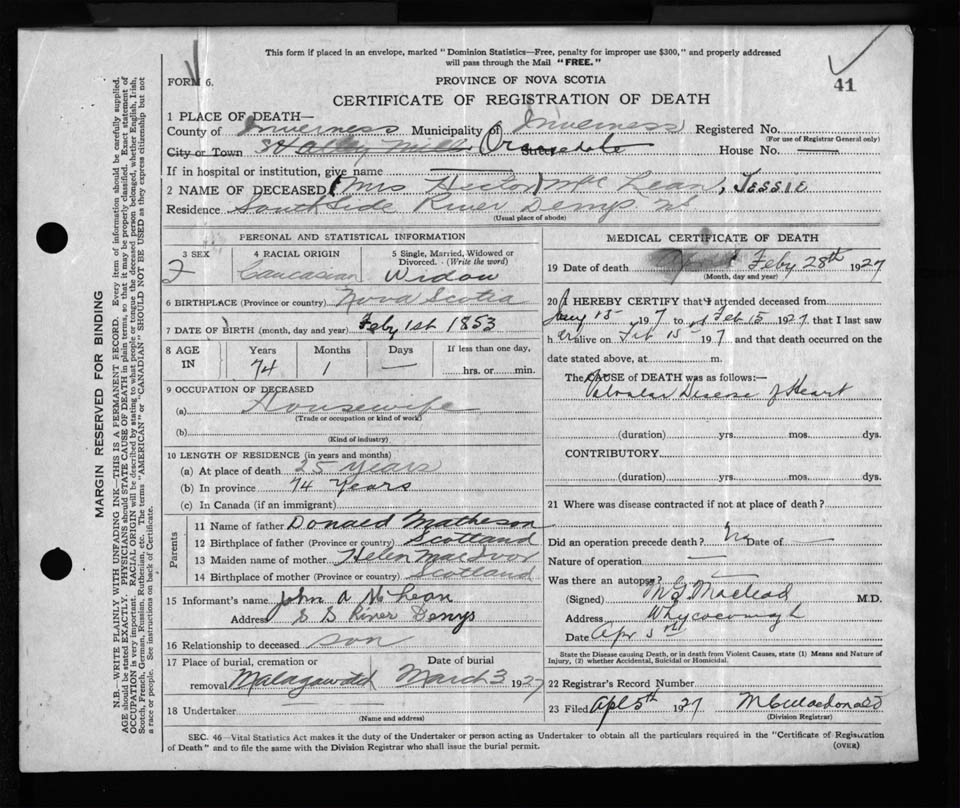 This form if placed in an envelope, marked "Dominion Statistics—Free, penalty for improper use $300," and properly addressed
will pass through the Mail "FREE."
FORM 6.
PROVINCE OF NOVA SCOTIA
41
CERTIFICATE OF REGISTRATION OF DEATH
1 PLACE OF DEATH—
County of Inverness Municipality of Inverness Registered No.
(For use of Registrar General only)
City or Town Orangedale Street House No. —
If in hospital or institution, give name
2 NAME OF DECEASED (Mrs Hector) Mac Lean, JESSIE
Residence South Side River Denys NS
(Usual place of abode)
PERSONAL AND STATISTICAL INFORMATION
3 SEX 4 RACIAL ORIGIN 5 Single, Married, Widowed or Divorced. (Write the word)
F Caucasian Widow
6 BIRTHPLACE (Province or country) Nova Scotia
7 DATE OF BIRTH (month, day and year) Feby 1st 1853
8 AGE IN Years Months Days If less than one day,
74 1 — hrs. or min.
9 OCCUPATION OF DECEASED
(a) Housewife
(Trade or occupation or kind of work)
(b)
(Kind of industry)
10 LENGTH OF RESIDENCE (in years and months)
(a) At place of death 25 years
(b) In province 74 Years
(c) In Canada (if an immigrant)
Parents
11 Name of father Donald Matheson
12 Birthplace of father (Province or country) Scotland
13 Maiden name of mother Helen MacIvor
14 Birthplace of mother (Province or country) Scotland
15 Informant's name John A McLean
Address S S River Denys
16 Relationship to deceased son
17 Place of burial, cremation or Date of burial
removal Malagawatch March 3 1927
18 Undertaker
(Name and address)
MEDICAL CERTIFICATE OF DEATH
19 Date of death Feby 28th 1927
(Month, day and year)
20 I HEREBY CERTIFY that I attended deceased from
Jany 15 1927 to Feb 15 1927 that I last saw
her alive on Feb 15 1927 and that death occurred on the
date stated above, at m.
The CAUSE of DEATH was as follows:—
Valvular Disease of Heart
(duration) yrs. mos. dys.
CONTRIBUTORY
(duration) yrs. mos. dys.
21 Where was disease contracted if not at place of death?
Did an operation precede death? No Date of —
Nature of operation —
Was there an autopsy? —
(Signed) M.G. Macleod M.D.
Address Whycocomagh
Date Apr 3rd
State the Disease causing Death, or in death from Violent Causes, state (1) Means and Nature of
Injury, (2) whether Accidental, Suicidal or Homicidal.
22 Registrar's Record Number
23 Filed Apl 5th 1927 M C Macdonald
(Division Registrar)
SEC. 46—Vital Statistics Act makes it the duty of the Undertaker or person acting as Undertaker to obtain all the particulars required in the "Certificate of Registration
of Death" and to file the same with the Division Registrar who shall issue the burial permit.
(OVER)
MARGIN RESERVED FOR BINDING
N.B.—WRITE PLAINLY WITH UNFADING INK—THIS IS A PERMANENT RECORD. Every item of information should be carefully supplied.
AGE should be stated EXACTLY. PHYSICIANS should STATE CAUSE OF DEATH in plain terms, so that it may be properly classified. Exact statement of
OCCUPATION is very important. RACIAL ORIGIN will be described by stating to what people or tongue the deceased person belonged, whether English, Irish,
Scotch, French, German, Russian, Ruthenian, etc. The terms "AMERICAN" or "CANADIAN" SHOULD NOT BE USED as they express citizenship but not
a race or people. See instructions on back of Certificate.